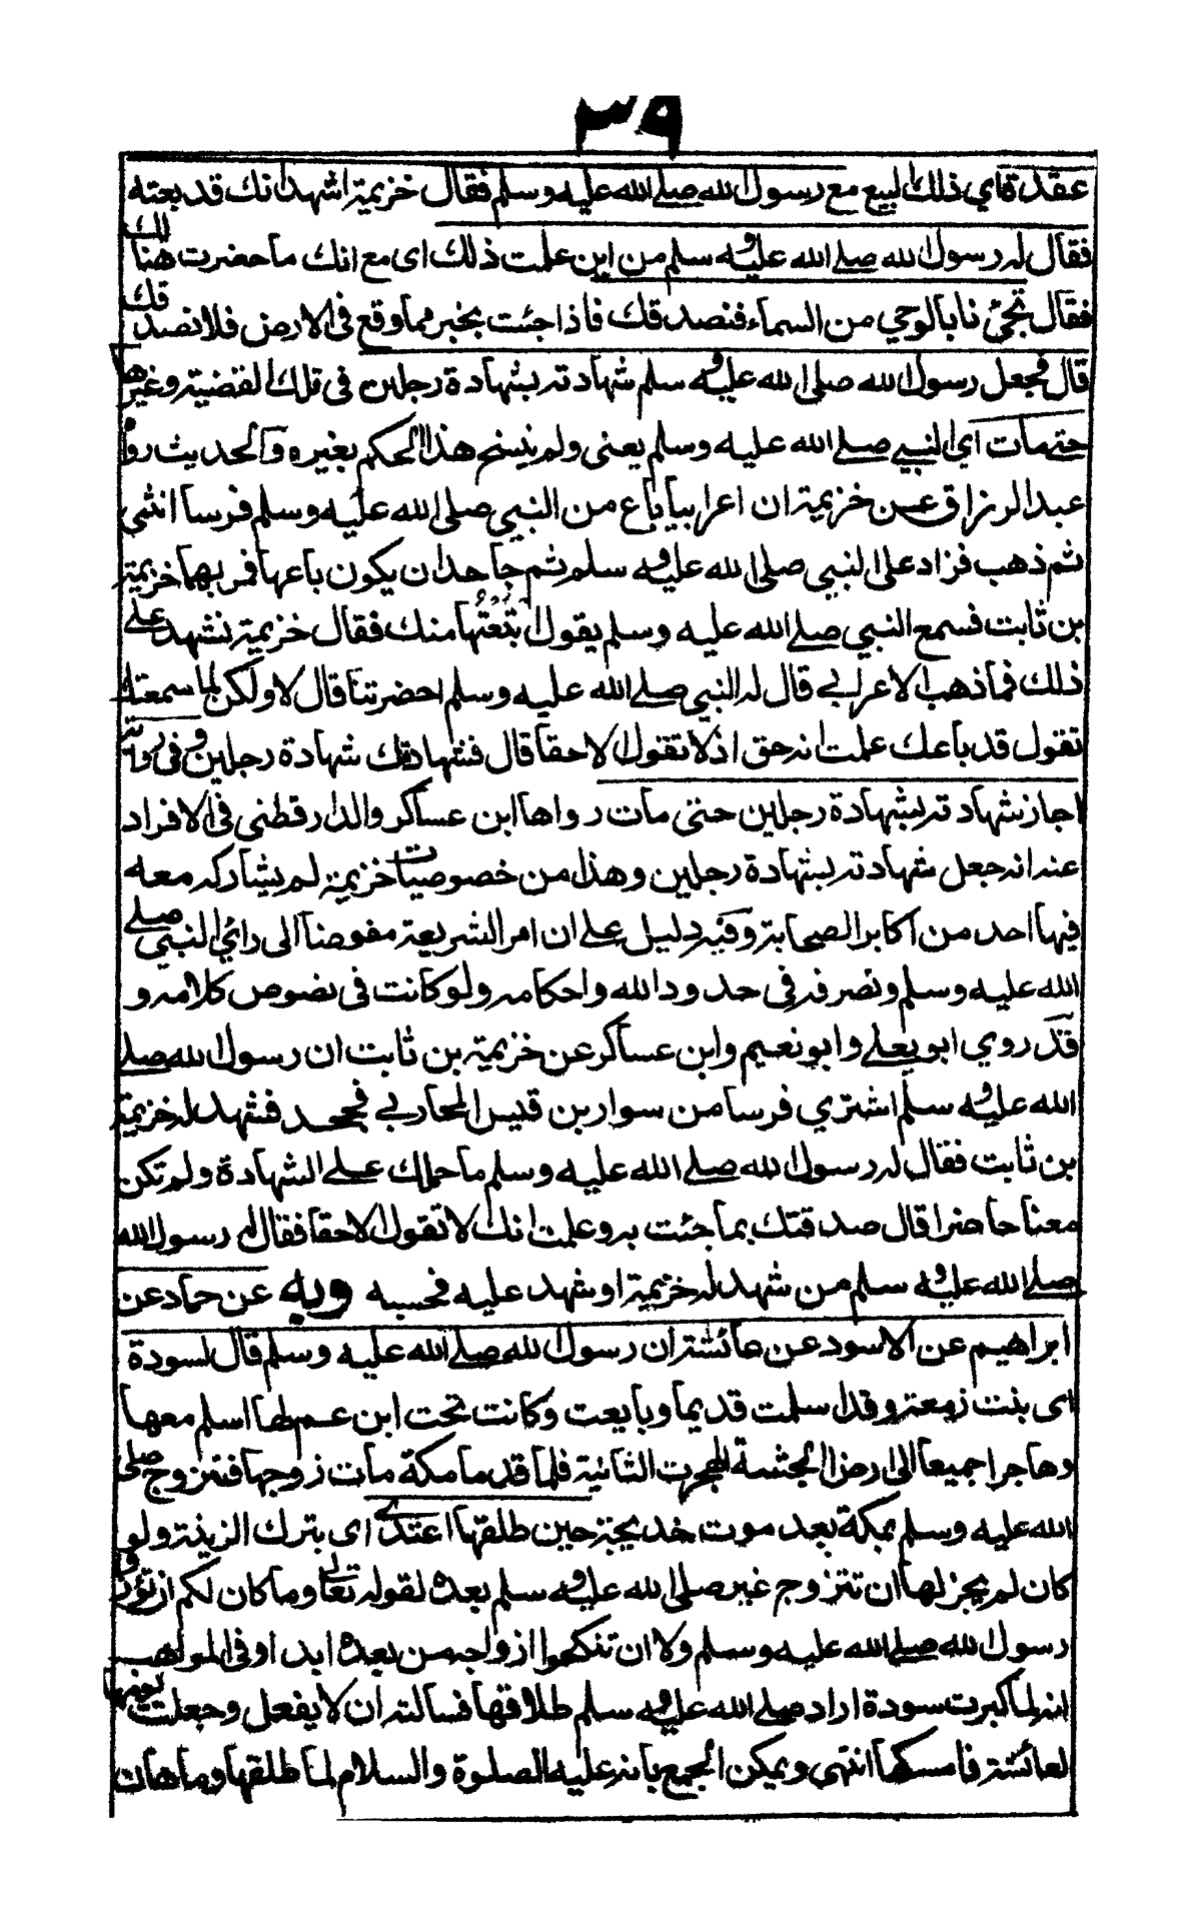 ٣٩
عقده اي ذلك البيع مع رسول الله صلى الله عليه وسلم فقال خزيمة اشهد انك قد بعته
فقال له رسول الله صلى الله عليه وسلم من اين علمت ذلك اى مع انك ما حضرت هنالك
فقال تجيئنا بالوحي من السماء فنصدقك فاذا جئت بخبر مما وقع فى الارض فلا نصدقك
قال فجعل رسول الله صلى الله عليه وسلم شهادته بشهادة رجلين فى تلك القضية وغيرها
حتى مات اي النبي صلى الله عليه وسلم يعنى ولم ينسخ هذا الحكم بغيره والحديث رواه
عبد الرزاق عن خزيمة ان اعرابيا باع من النبي صلى الله عليه وسلم فرسا انثى
ثم ذهب فزاد على النبي صلى الله عليه وسلم ثم جاحد ان يكون باعها فمر بهما خزيمة
بن ثابت فسمع النبي صلى الله عليه وسلم يقول ابتعتها منك فقال خزيمة نشهد على
ذلك فما ذهب الاعرابي قال له النبي صلى الله عليه وسلم احضرتنا قال لا ولكن لما سمعتك
تقول قد باعك علمت انه حق اذ لا تقول لا حقا قال فشهادتك شهادة رجلين وفى رواية
اجاز شهادته بشهادة رجلين حتى مات رواها ابن عساكر والدارقطنى فى الافراد
عنه انه جعل شهادته بشهادة رجلين وهذا من خصوصيات خزيمة لم يشاركه معه
فيها احد من اكابر الصحابة وفيه دليل على ان امر الشريعة مفوضا الى رائي النبي صلى
الله عليه وسلم وتصرفه فى حدود الله واحكامه ولو كانت فى نصوص كلامه و
قد روي ابو يعلى وابو نعيم وابن عساكر عن خزيمة بن ثابت ان رسول الله صلى
الله عليه وسلم اشتري فرسا من سوار بن قيس المحاربي فجحد فشهد له خزيمة
بن ثابت فقال له رسول الله صلى الله عليه وسلم ما حملك على الشهادة ولم تكن
معنا حاضرا قال صدقتك بما جئت به وعلمت انك لا تقول الا حقا فقال رسول الله
صلى الله عليه وسلم من شهد له خزيمة او شهد عليه فحسبه وبه عن حماد عن
ابراهيم عن الاسود عن عائشة ان رسول الله صلى الله عليه وسلم قال لسودة
اى بنت زمعة وقد اسلمت قديما وبايعت وكانت تحت ابن عم لها اسلم معها
وهاجرا جميعا الى ارض الحبشة الهجرت الثانية فلما قدما مكة مات زوجها فتزوج صلى
الله عليه وسلم بمكة بعد موت خديجة حين طلقها اعتدى اى بترك الزينة ولو
كان لم يجز لها ان تتزوج غيره صلى الله عليه وسلم بعده لقوله تعالى وما كان لكم ان تؤذوا
رسول الله صلى الله عليه وسلم ولا ان تنكحوا ازواجه من بعده ابدا وفى المواهب
انه لما كبرت سودة اراد صلى الله عليه وسلم طلاقها فسالته ان لا يفعل وجعلت يومها
لعائشة فامسكها انتهى ويمكن الجمع بانه عليه الصلوة والسلام لما طلقها وما هات